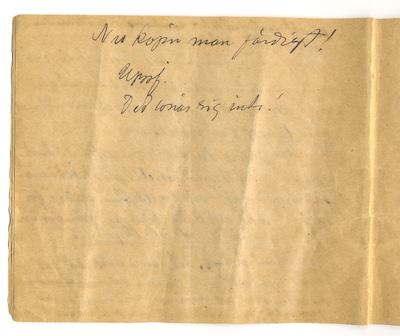 Nu köper man färdigt!
Uppf.
Det lönar sig inte!